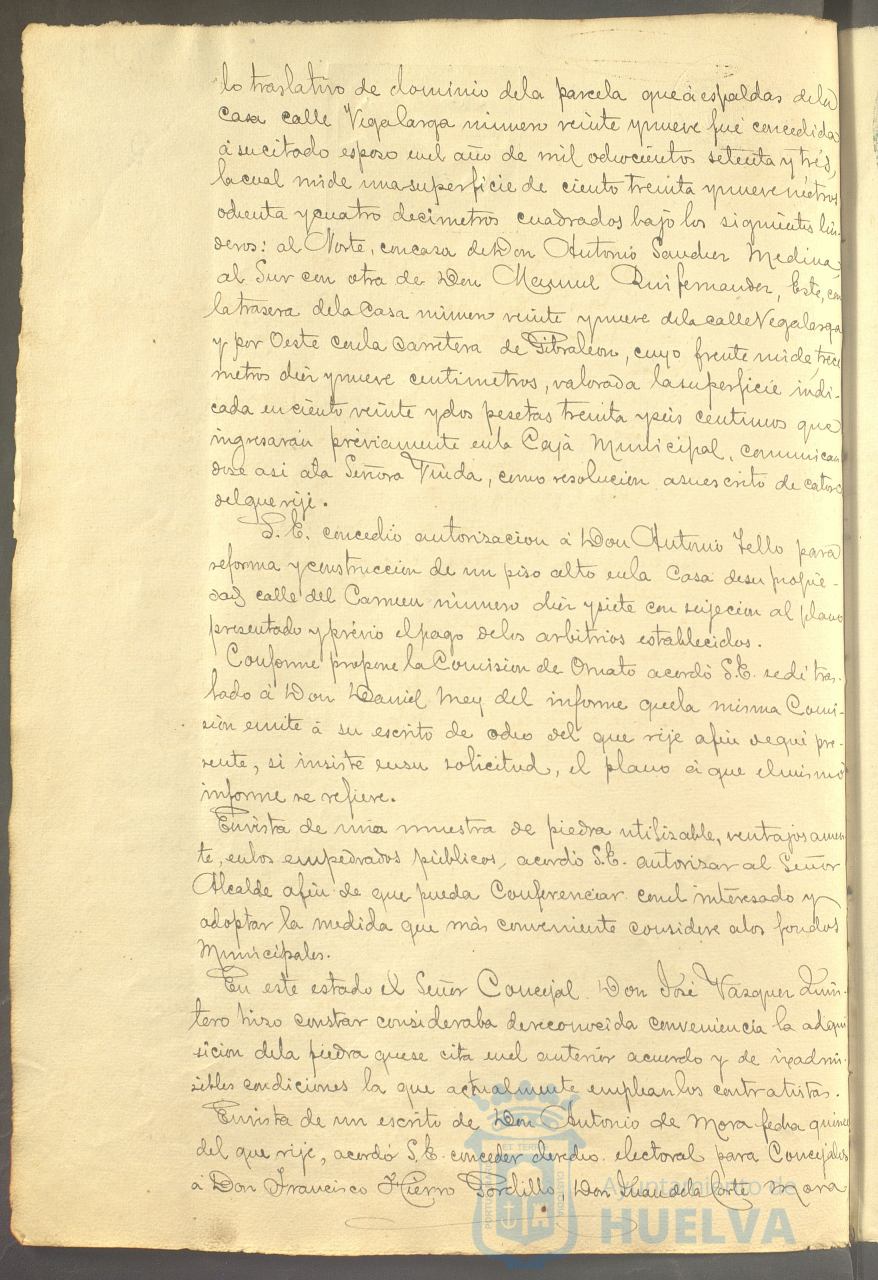 lo traslativo de dominio dela parcela que á espaldas dela
Casa calle Vegalarga número veinte y nueve fué concedida
á su citado esposo en el año de mil ochocientos setenta y trés,
la cual mide una superficie de ciento treinta y nueve metros
ochenta y cuatro decimetros cuadrados bajo los siguientes lin-
deros: al Norte, con casa de Don Antonio Sanchez Medina,
al Sur con otra de Don Manuel Ruifernandez, Este, con
la trasera dela Casa número veinte y nueve dela calle Vegalarga
y por Oeste con la Carretera de Gibraleon, cuyo frente mide, trece
metros diez y nueve centimetros, valorada la superficie indi-
cada en ciento veinte y dos pesetas treinta y seis centimos que
ingresarán préviamente en la Caja Municipal, comunican
dose asi ala Señora Viuda, como resolucion a su escrito de catorce
del que rije.
S. E. concedió autorizacion á Don Antonio Tello para
reforma y construccion de un piso alto en la Casa de su propie-
dad calle del Carmen número diez y siete con sujecion al plano
presentado y prévio el pago delos arbitrios establecidos.
Conforme propone la Comision de Ornato acordó S.E. se dé tras-
lado á Don Daniel Mey del informe que la misma Comi-
sión emite á su escrito de ocho del que rije afin de qui pre-
sente, si insiste en su solicitud, el plano á que el mismo
informe se refiere.
En vista de una muestra de piedra utilizable, ventajosamen
te, en los empedrados públicos, acordó S.E. autorizar al Señor
Alcalde afin de que pueda Conferenciar con el interesado y
adoptar la medida que más conveniente considere alos fondos
Municipales.
En este estado el Señor Concejal Don José Vazquez Quin-
tero hizo constar consideraba de reconocida conveniencia la adqui
sicion dela piedra que se cita en el anterior acuerdo y de inadmi-
sibles condiciones la que actualmente emplean los contratistas.
En vista de un escrito de Don Antonio de Mora fecha quince
del que rije, acordó S.E. conceder derecho electoral para Concejales
á Don Francisco Hierro Gordillo, Don Juan de la Corte Mora
Ayuntamiento de
HUELVA